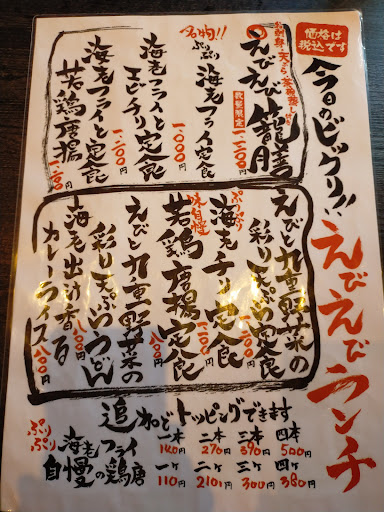 価格は
税込です
今日のビックリ!!
えびえびランチ
お刺身・天ぷら・茶碗蒸し付
えびえび籠膳
数量限定
名物!!
ぷりぷり
海老フライ定食
一、〇〇〇円
海老フライと
エビチリ定食
一、二〇〇円
海老フライと
若鶏唐揚定食
一、二〇〇円
えびと九重野菜の
彩り天ぷら定食
ぷりぷり
海老チリ定食
味自慢
若鶏唐揚定食
えびと九重野菜の
彩り天ぷらうどん
海老出汁香る
カレーライス
八〇〇円
追加でトッピングできます
一本 二本 三本 四本
ぷりぷり海老フライ
140円 270円 390円 500円
一ケ 二ケ 三ケ 四ケ
自慢の鶏唐
110円 210円 300円 380円